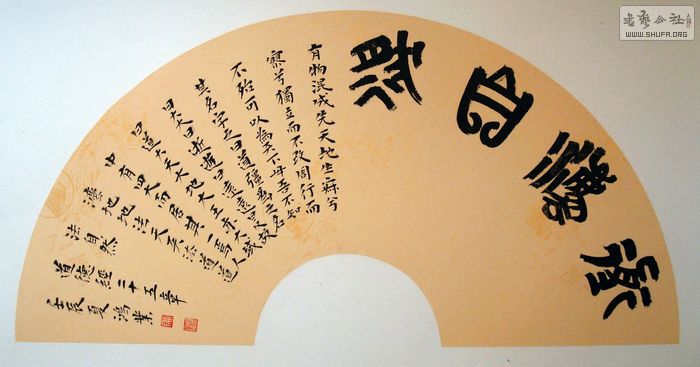 道灋自然
有物混成先天地生寂兮
寥兮獨立而不改周行而
不殆可以為天下母吾不知
其名字之曰道彊為之名
曰大大曰逝逝曰遠遠曰反故
道大天大地大王亦大域
中有四大而居其一焉人
灋地地法天天法道道
法自然
道德經二十五章
壬辰夏鴻業
書藝公社
WWW.SHUFA.ORG